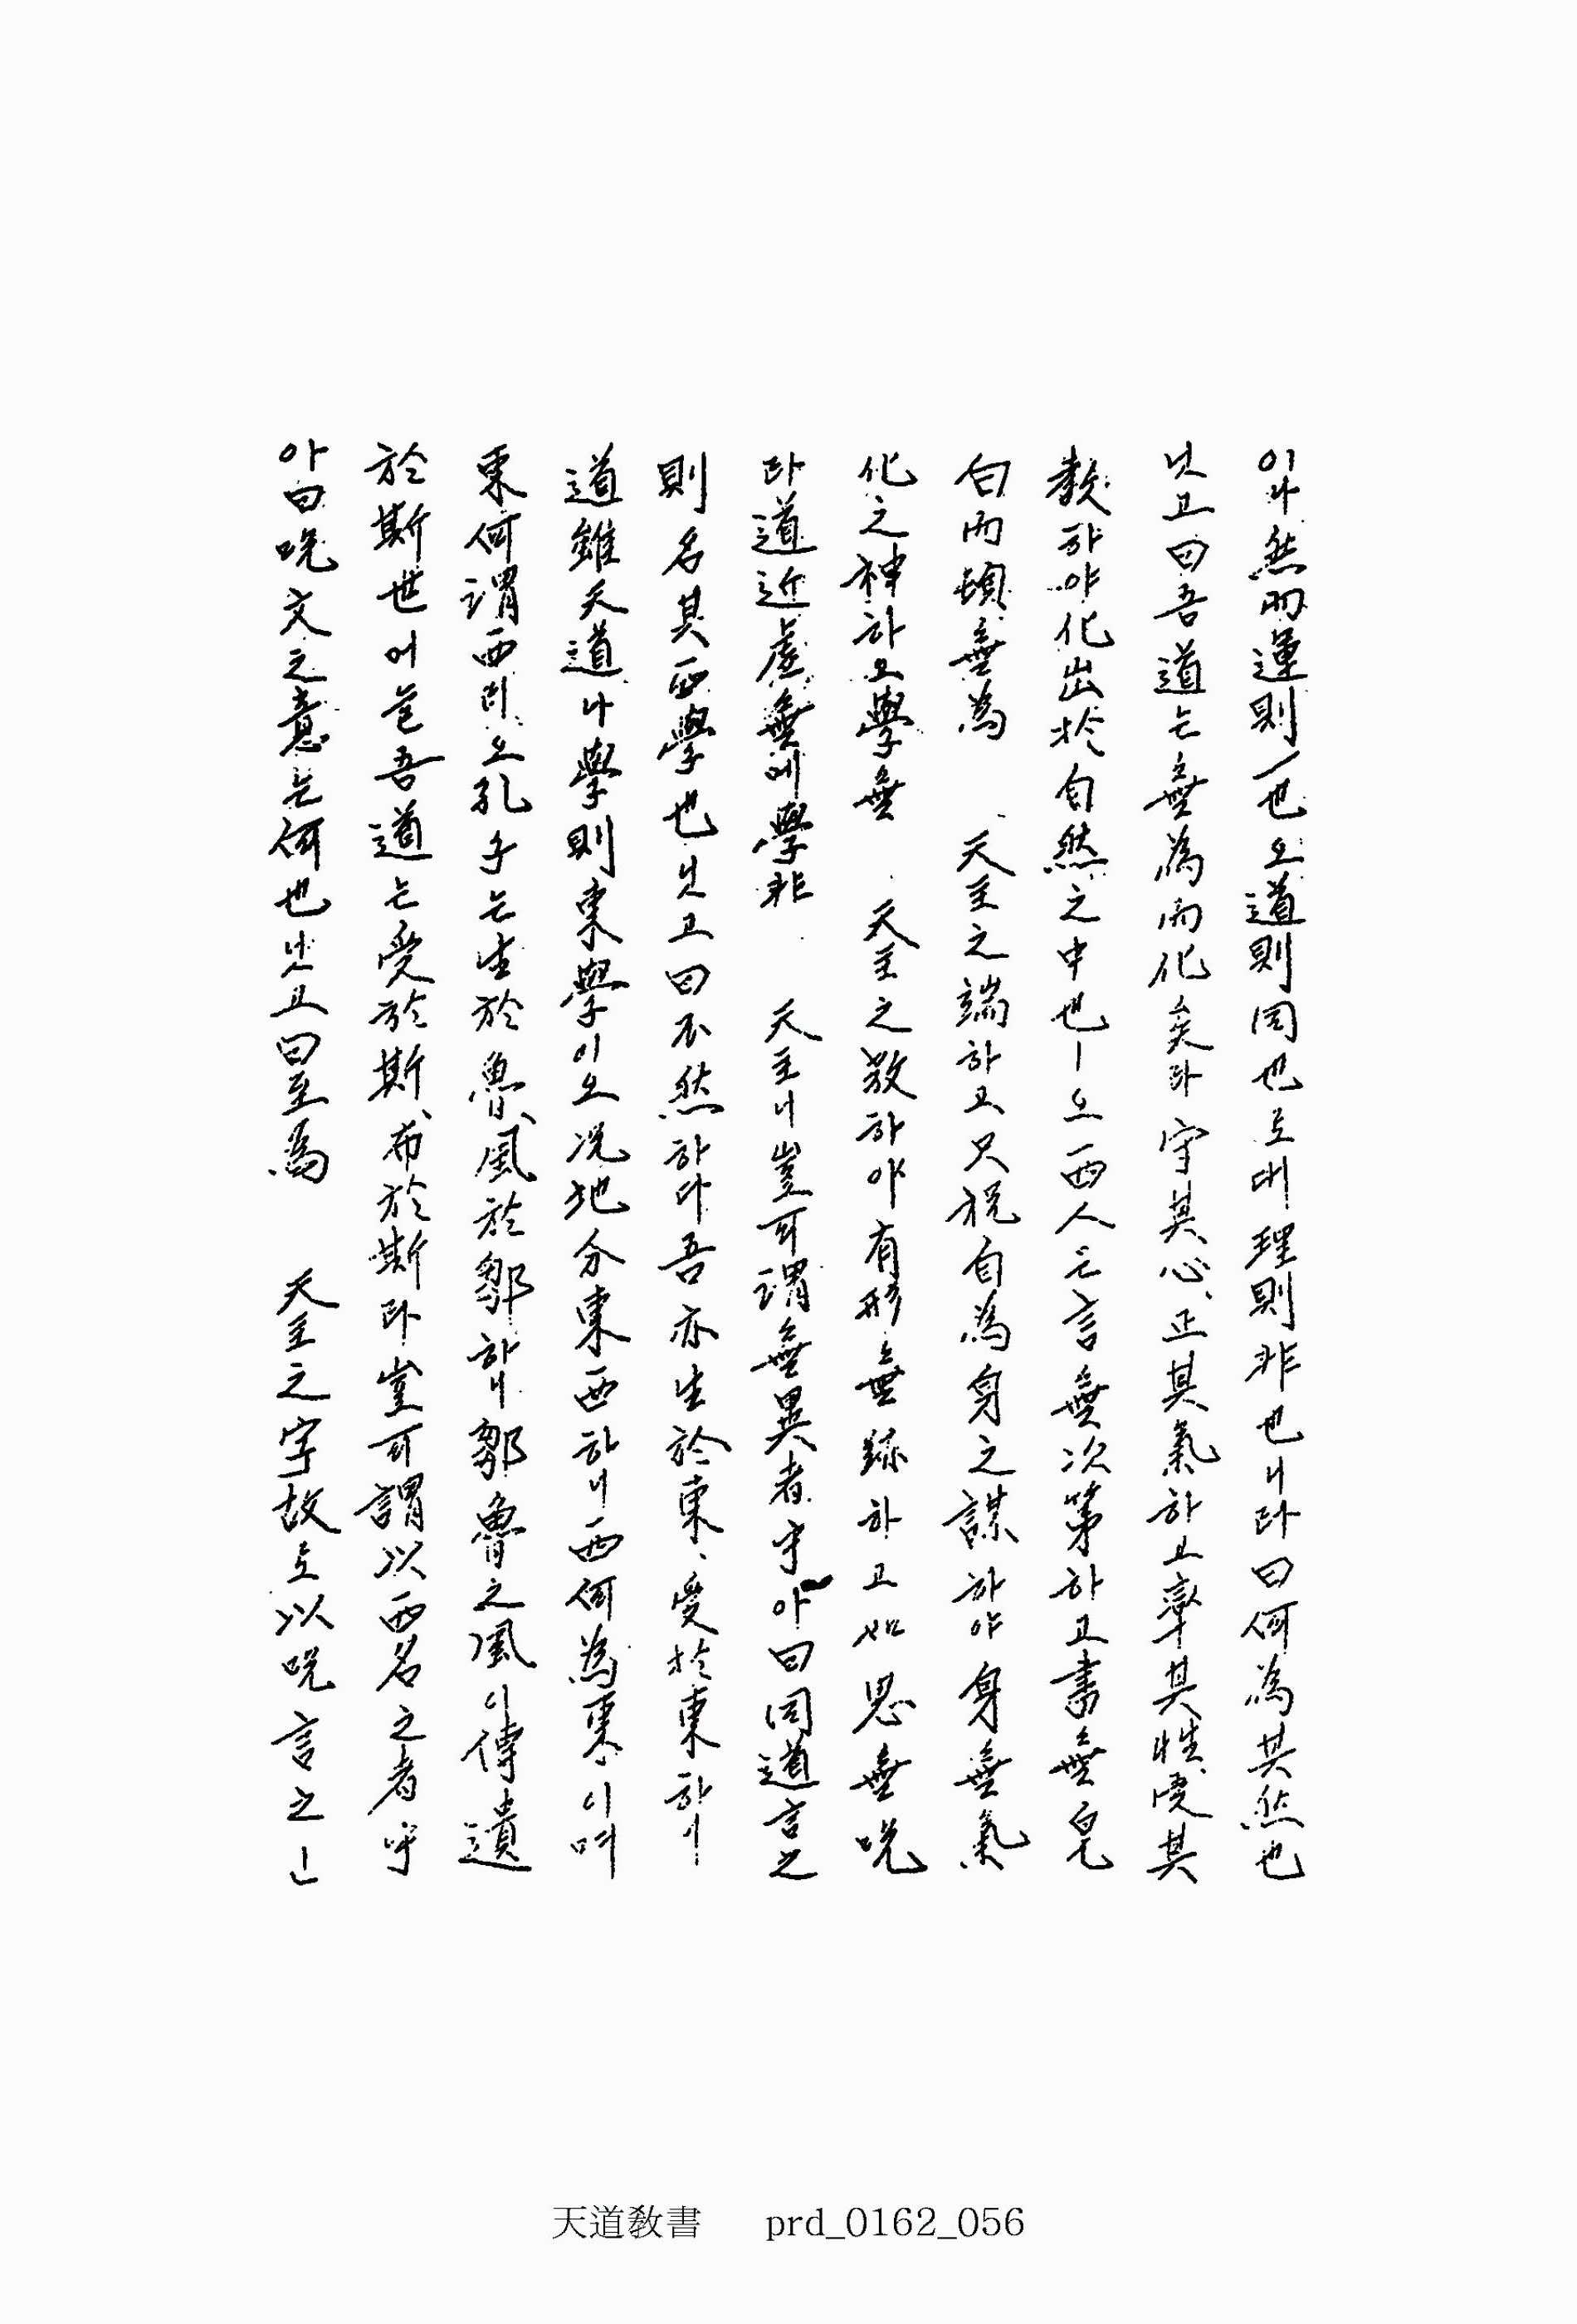 이나然而運則一也오道則同也로대理則非也니라曰何為其然也
닛고曰吾道는無為而化矣라守其心、正其氣하고率其性、受其
教하야化出於自然之中也ㅣ오西人은言無次第하고書無皂
白而頓無為 天主之端하고只祝自為身之謀하야身無氣
化之神하오學無 天主之教하야有形無跡하고如思無呪
라道近虛無에學非 天主니豈可謂無異者乎아曰同道言之
則名其西學也닛고曰不然하다吾亦生於東、受於東하니
道雖天道나學則東學이오況地分東西하니西何為東、이며
東何謂西리오孔子는生於魯、風於鄒하니鄒魯之風이傳遺
於斯世어늘吾道는受於斯、布於斯라豈可謂以西名之者乎
아曰呪文之意는何也닛고曰至為 天主之字故로以呪言之ㅣ니
天道敎書 prd_0162_056